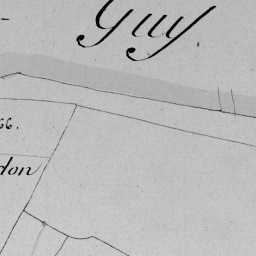 Guy.
66.
don